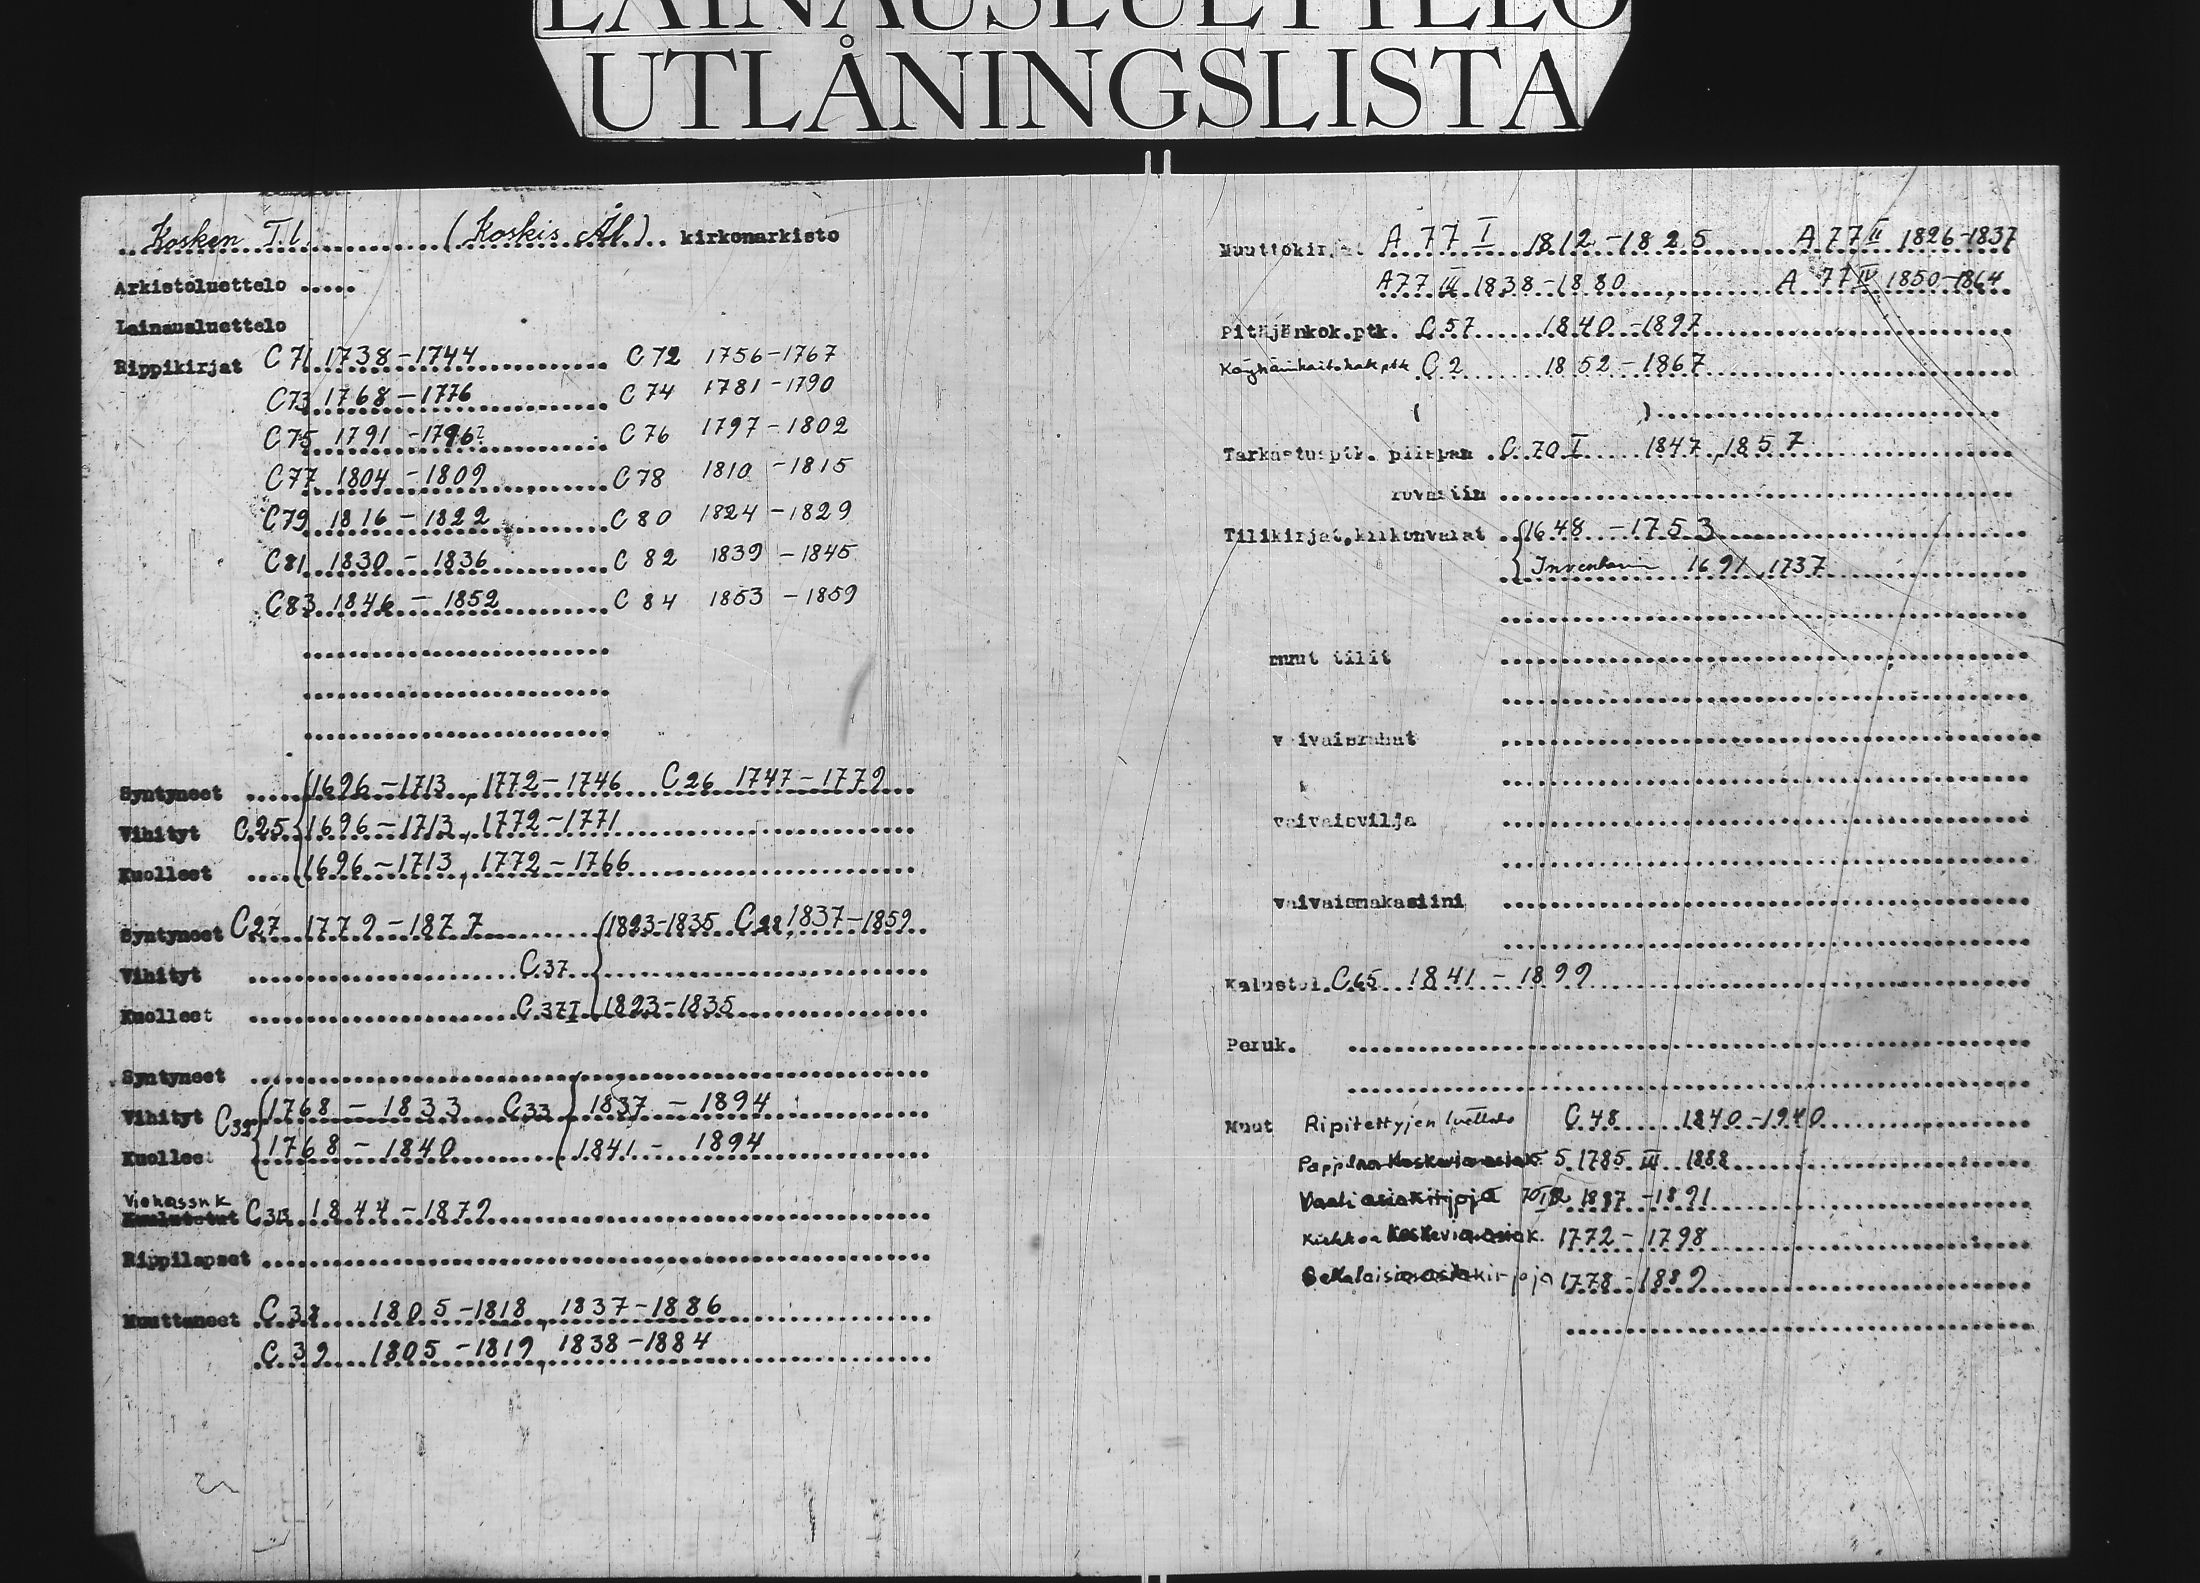 LAINAUSLUETTELO
UTLÅNINGSLISTA
Kosken T.l. (Koskis Ål) kirkonarkisto
Arkistoluettelo .....
Lainausluettelo
Rippikirjat C 71 1738-1744 C 72 1756-1767
C 73 1768-1776 C 74 1781-1790
C 75 1791-1796? C 76 1797-1802
C 77 1804-1809 C 78 1810-1815
C 79 1816-1822 C 80 1824-1829
C 81 1830-1836 C 82 1839-1845
C 83 1846-1852 C 84 1853-1859
Syntyneet 1696-1713, 1772-1746 C 26 1747-1779
Vihityt C 25 1696-1713, 1772-1771
Kuolleet 1696-1713, 1772-1766
Syntyneet C 27 1779-1877 1823-1835 C 28, 1837-1859
Vihityt C 37
Kuolleet C 37 I 1823-1835
Syntyneet
Vihityt C 32 1768-1833 C 33 1837-1894
Kuolleet 1768-1840 1841-1894
Viehassn k.
Kuulutetut C 313 1844-1879
Rippilapset
Muuttaneet C 38 1805-1818, 1837-1886
C 39 1805-1819, 1838-1884
Muuttokirjat A 77 I 1812-1825 A 77 II 1826-1837
A 77 III 1838-1880 A 77 IV 1850-1864
Pitäjänkok.ptk. C 57 1840-1897
C 2 1852-1867
( )
Tarkastusptk. piispan C 70 I 1847, 1857
rovastin
Tilikirjat, kirkonvarat 1648-1753
1691, 1737
muut tilit
vaivaisrahat
vaivaisvilja
vaivaismakasiini
Kalustol. C 65 1841-1899
Peruk.
Muut Ripitettyjen luettelo C 48 1840-1940
Pappilaa koskevia asiak. 5 1785 III 1888
Vaali asiakirjoja 1887-1891
Kirkkoa koskevia asiak. 1772-1798
Sekalaisia asiakirjoja 1778-1889